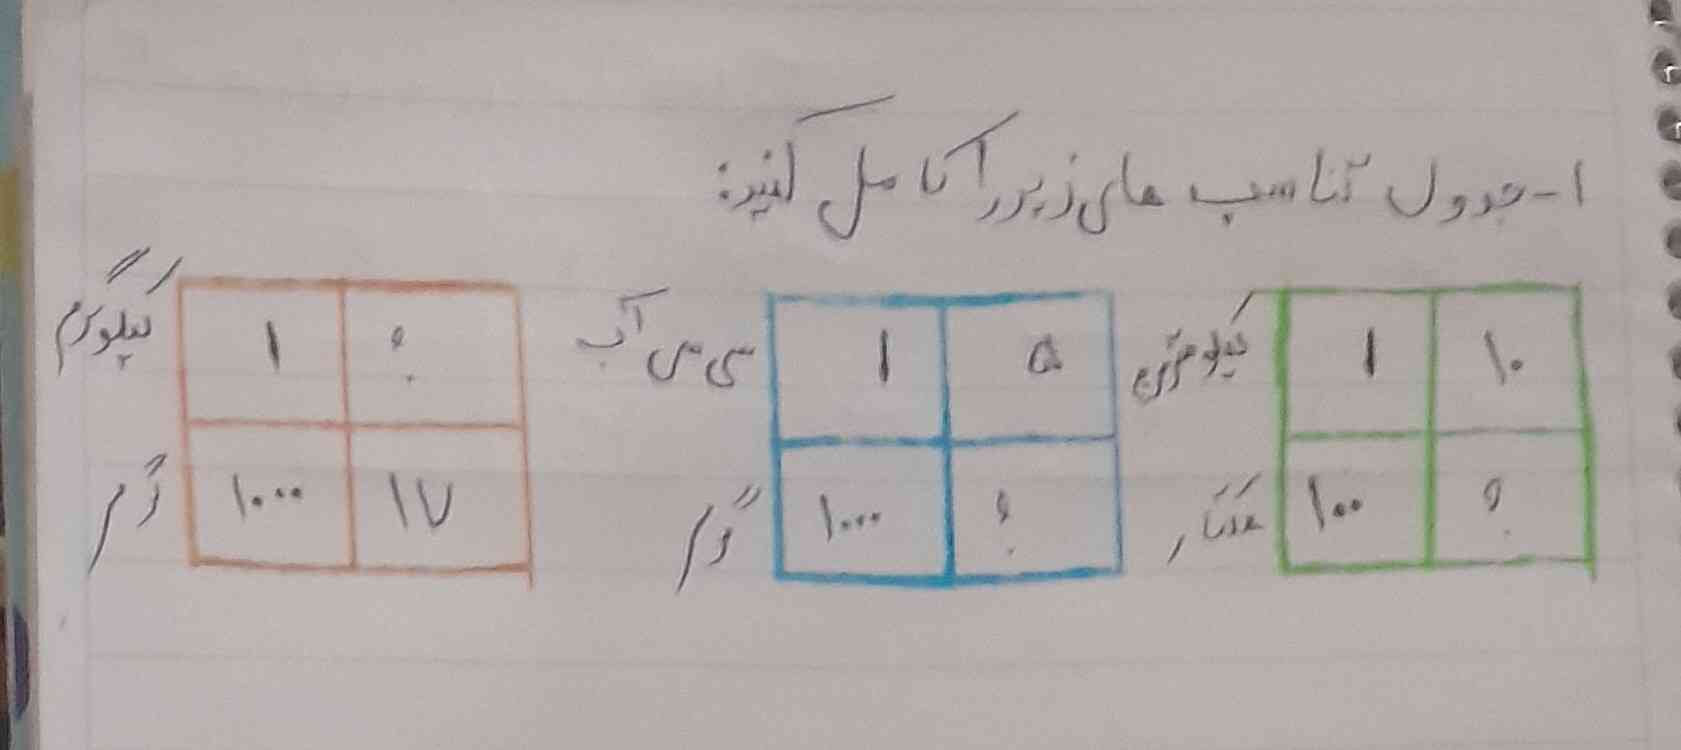 ۱- جدول تناسب های زیر را کامل کنید:
کیلومترمربع ۱ ۱۰
هکتار ۱۰۰ ؟
سی سی آب ۱ ۵
گرم ۱۰۰۰ ؟
کیلوگرم ۱ ؟
گرم ۱۰۰۰ ۱۷